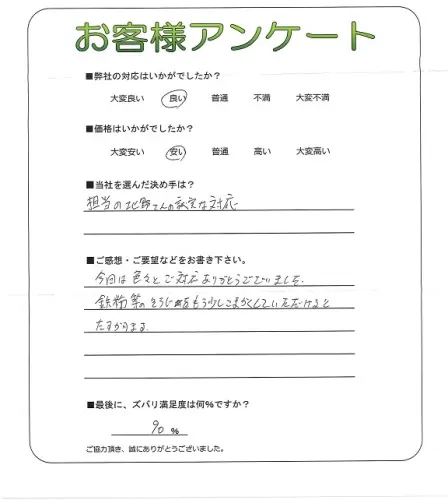 お客様アンケート
■弊社の対応はいかがでしたか？
大変良い 良い 普通 不満 大変不満
■価格はいかがでしたか？
大変安い 安い 普通 高い 大変高い
■当社を選んだ決め手は？
担当の北野さんの誠実な対応
■ご感想・ご要望などをお書き下さい。
今回は色々とご対応ありがとうございました。
鉄粉等のそうじをもう少しこまかくしていただけると
たすかります。
■最後に、ズバリ満足度は何％ですか？
90 ％
ご協力頂き、誠にありがとうございました。